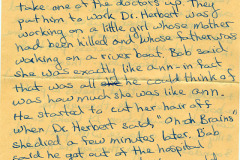 take one of the doctors up. They
put him to work. Dr. Herbert was
working on a little girl whose mother
had been killed and whose father was
working on a river boat. Bob said
she was exactly like ann-in fact
that was all he could think of
was how much she was like ann.
He started to cut her hair off
when Dr. Herbert said, "Oh oh Brains"
she died a few minutes later. Bob
said he got out of the hospital